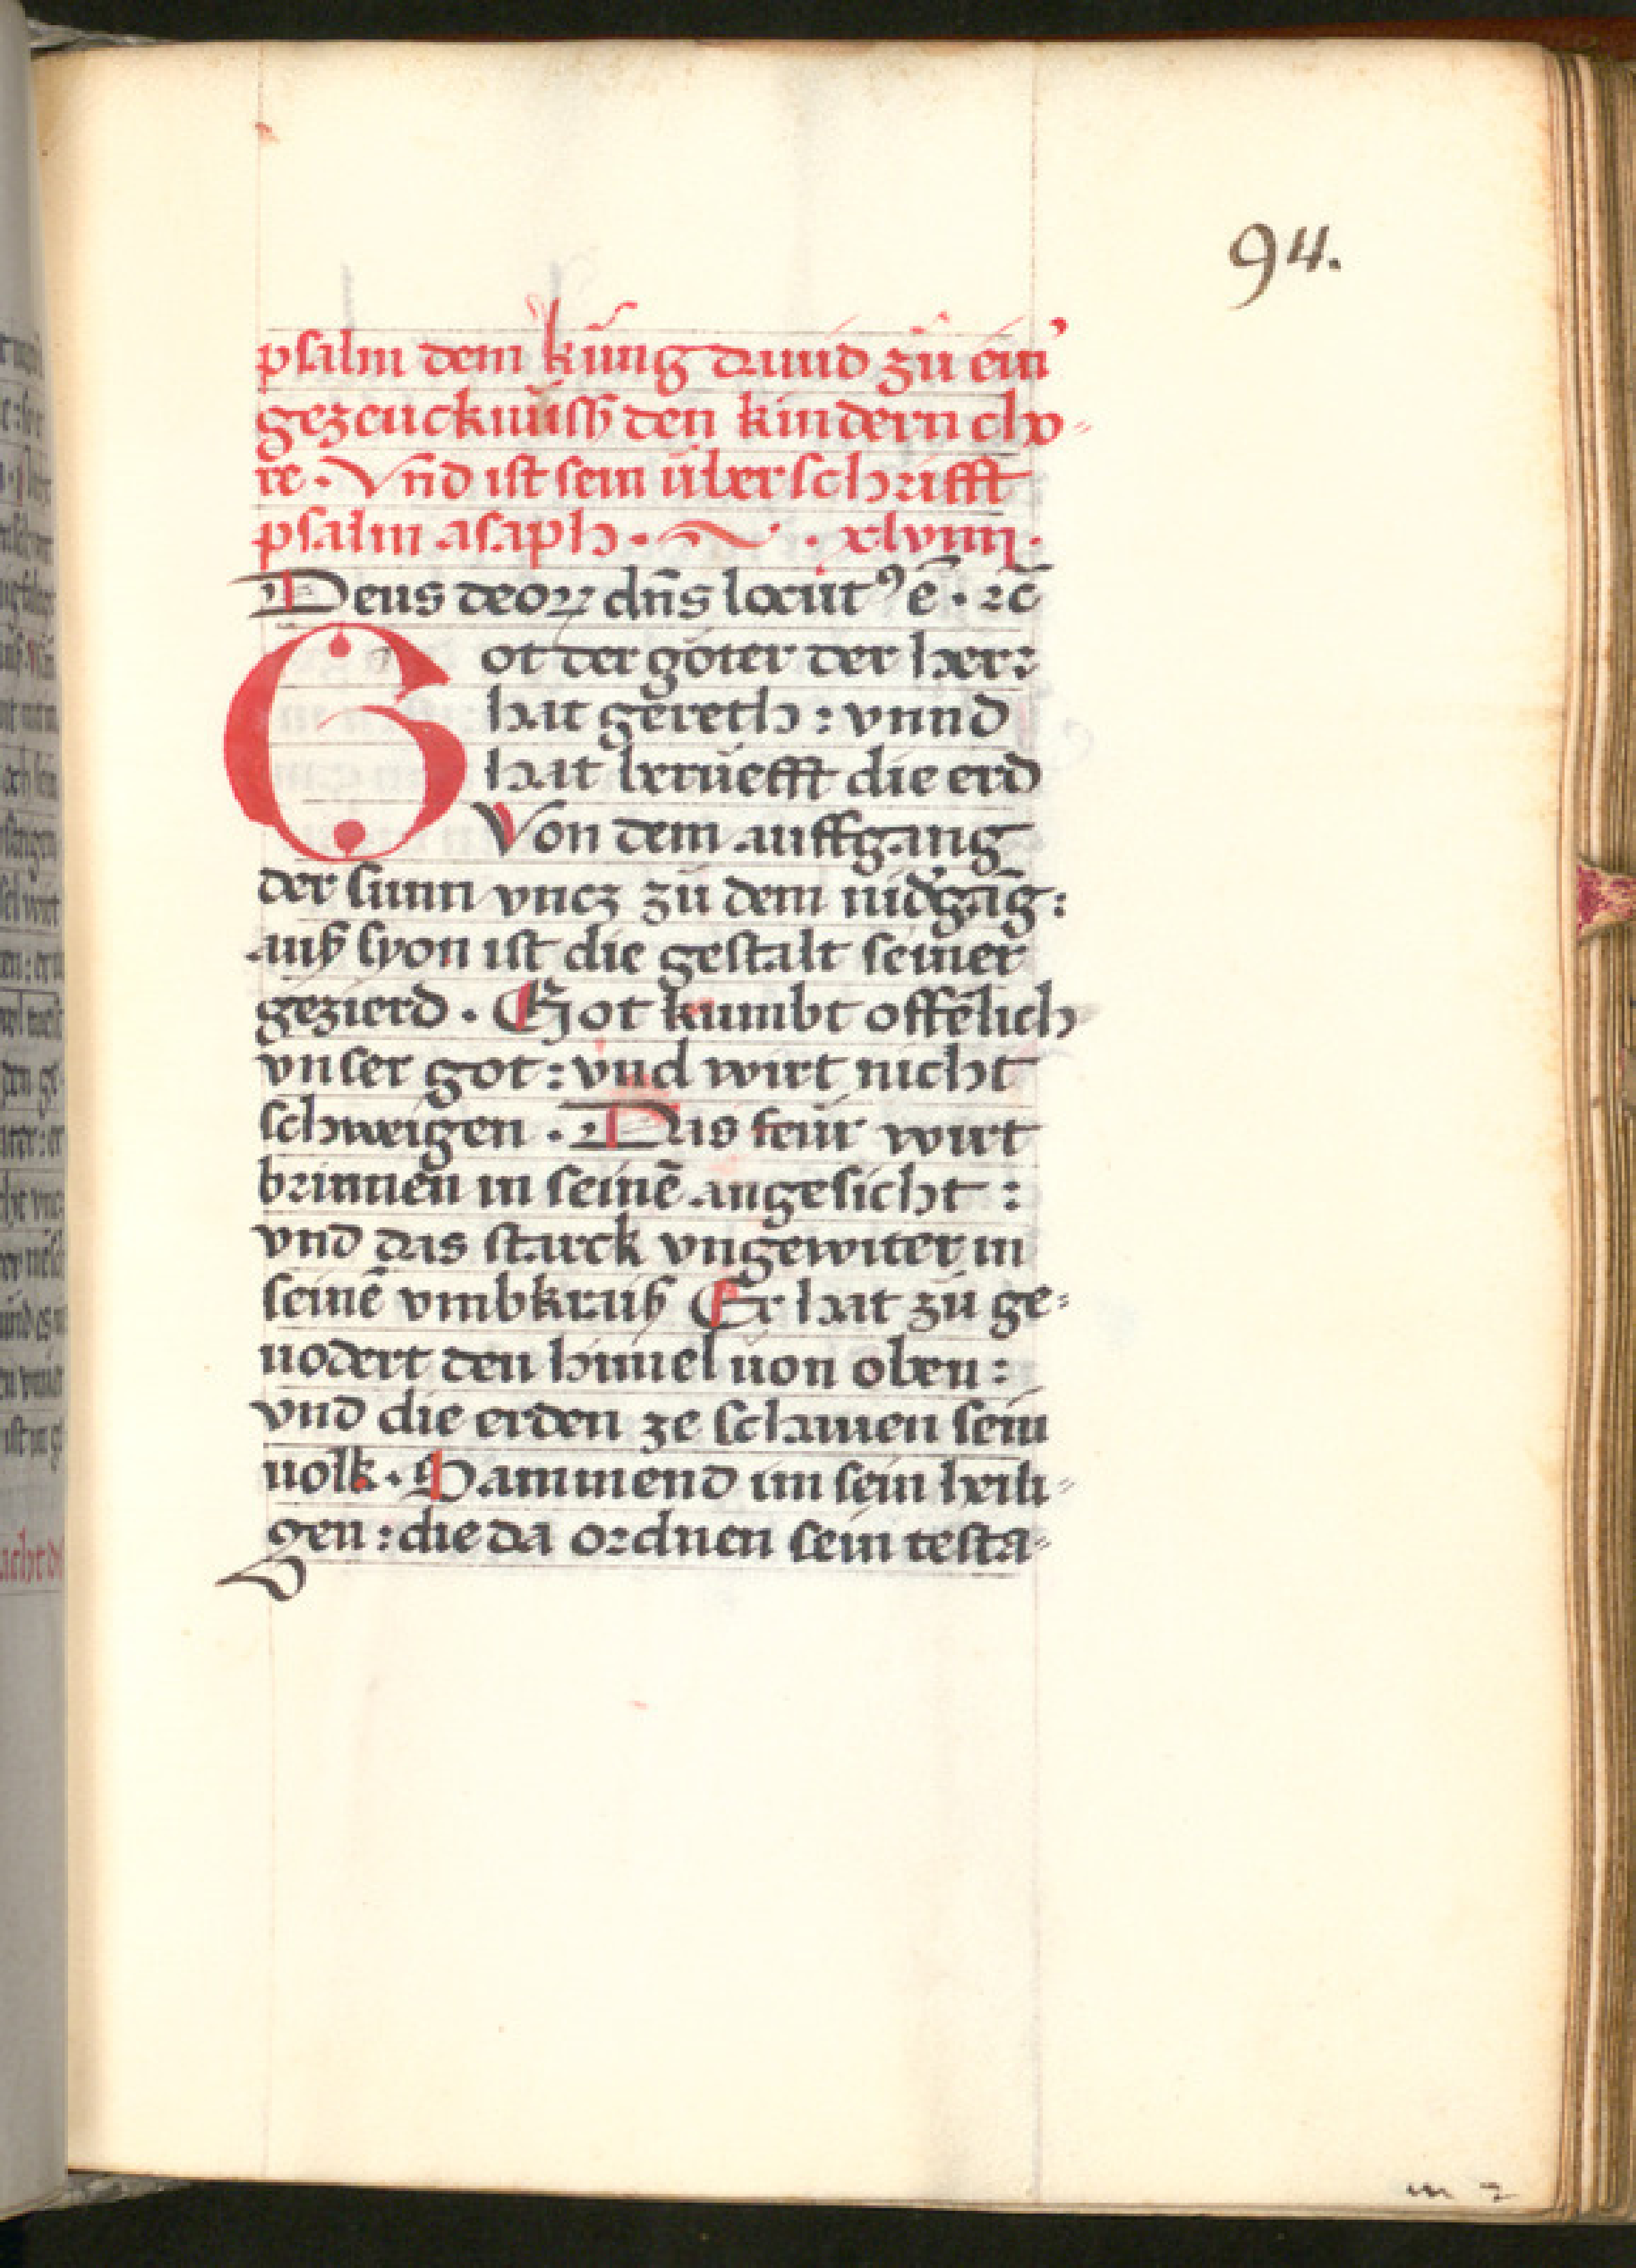 94.
psalm dem kűng dauid zů ein᾽
gezeucknűſß den kindern cho-
re. Vn̄d iſt ſein űberſchrifft
pſalm aſaph. ~ . xlviiij.
Deus deoꝝ dn̄s locutꝰ ē. ꝛc̄
Got der göter der her:
hat gereth: vnnd
hat berűefft die erd
Von dem auffgang
der sunn vncz zů dem nid᾽gāg:
auß syon iſt die geſtalt ſeiner
gezierd. Got kumbt offēlich
vnſer got: vnd wirt nicht
ſchweigen. Das feűr wirt
brinnen in ſeinē angeſicht:
vnd das ſtarck vngewiter in
ſeinē vmbkraiß Er hat zů ge-
uodert den himel uon oben:
vnd die erden ze ſchauen ſein
uolk. Sammend im ſein heili-
gen: die da ordnen ſein teſta-
m 2